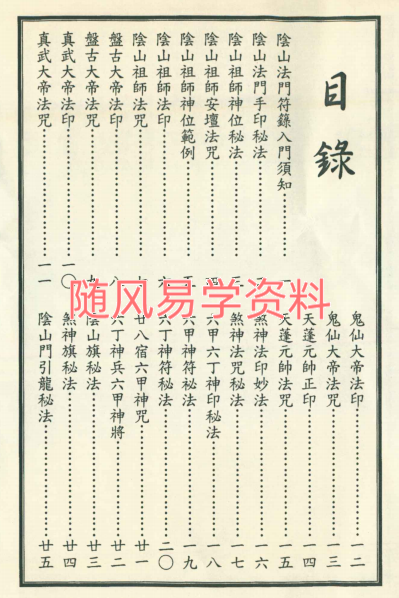 目錄
陰山法門符籙入門須知……………一
陰山法門手印秘法……………二
陰山祖師神位秘法……………三
陰山祖師安壇法咒……………四
陰山祖師神位範例……………五
陰山祖師法印……………六
陰山祖師法咒……………七
盤古大帝法印……………八
盤古大帝法咒……………九
真武大帝法印……………一〇
真武大帝法咒……………一一
鬼仙大帝法印……………一二
鬼仙大帝法咒……………一三
天蓬元帥正印……………一四
天蓬元帥法咒……………一五
煞神法印妙法……………一六
煞神法咒秘法……………一七
六甲六丁神印秘法……………一八
六甲神符秘法……………一九
六丁神符秘法……………二〇
廿八宿六甲神咒……………廿一
六丁神兵六甲神將……………廿二
陰山旗秘法……………廿三
煞神旗秘法……………廿四
陰山門引龍秘法……………廿五
随风易学资料